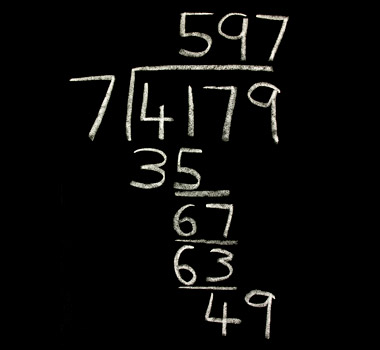 597
7 4179
35
67
63
49